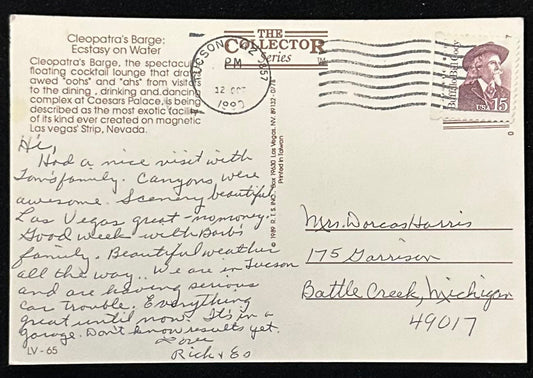 Cleopatra's Barge:
Ecstasy on Water
Cleopatra's Barge, the spectacular
floating cocktail lounge that draws
awed "oohs" and "ahs" from visitors
to the dining, drinking and dancing
complex at Caesars Palace, is being
described as the most exotic facility
of its kind ever created on magnetic
Las vegas' Strip, Nevada.
THE
COLLECTOR
Series
TUCSON AZ 857
PM
12 OCT
1990
Buffalo Bill Cody
USA 15
© 1989 R.T.S. INC., Box 19630 Las Vegas, NV. 89132-0174
Printed in Taiwan
Hi,
Had a nice visit with
Tom's family. Canyons were
awesome. Scenery beautiful
Las Vegas great - no money.
Good week with Barb's
family. Beautiful weather
all the way.. We are in Tucson
and are having serious
car trouble. Everything
great until now. It's in a
garage. Don't know results yet.
Love
Rick + Es
Mrs. Dorcas Harris
175 Garrison
Battle Creek, Michigan
49017
LV - 65